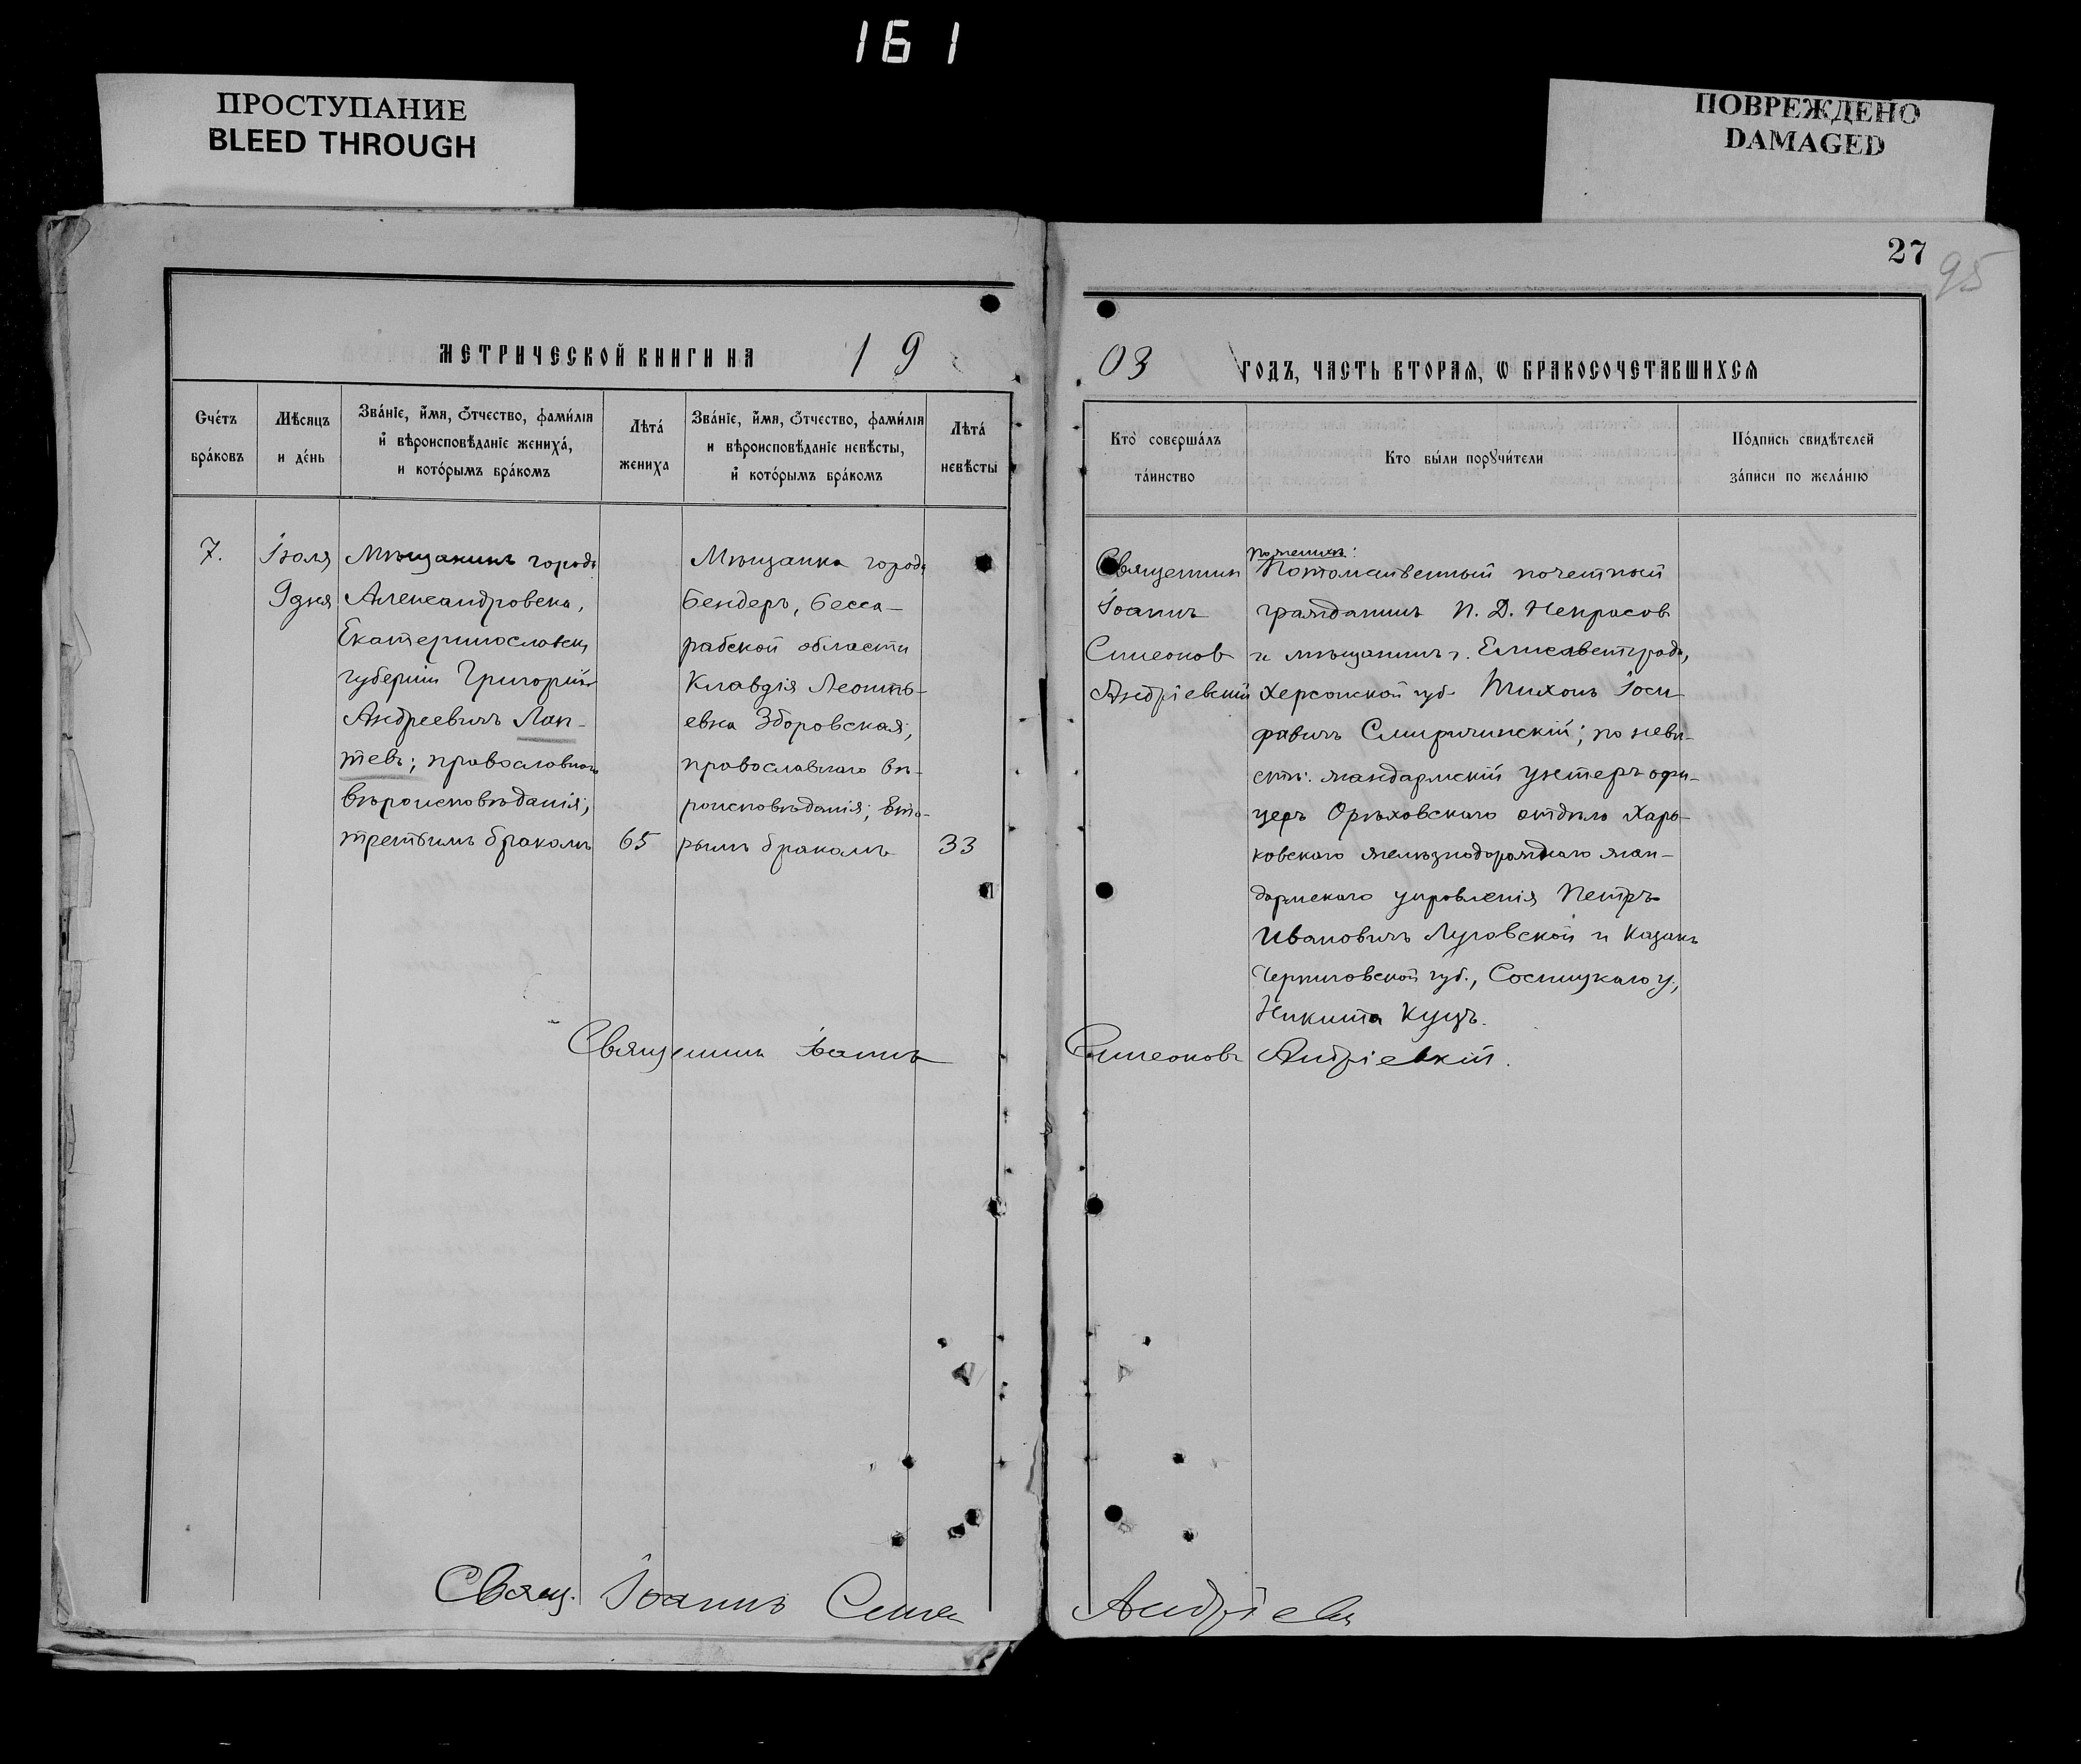 161
ПРОСТУПАНИЕ
BLEED THROUGH
ПОВРЕЖДЕНО
DAMAGED
27
95
МЕТРИЧЕСКОЙ КНИГИ НА 19
03 ГОДЪ, ЧАСТЬ ВТОРАЯ, Ѡ БРАКОСОЧЕТАВШИХСЯ
Счётъ
бра́ковъ
Мѣсяцъ
и де́нь
Зва́нїе, и҆́мя, ѻ҆́тчество, фами́лїя
и҆ вѣроисповѣ́данїе жениха́,
и кото́рымъ бра́комъ
Лѣта́
жениха
Зва́нїе, и҆́мя, ѻ҆́тчество, фами́лїя
и вѣроисповѣ́данїе невѣ́сты,
и҆ кото́рымъ бра́комъ
Лѣта́
невѣ́сты
Кто̀ соверша́лъ
та́инство
Кто бы́ли порꙋчи́тели
По́дпись свидѣ́телей
за́писи по жела́нїю
7.
Іюля
9 дня
Мѣщанинъ города
Александровска,
Екатеринославск
губерніи Григорій
Андреевичъ Лап-
тевъ; православнаго
вѣроисповѣданія;
третьимъ бракомъ
65
Мѣщанка города
Бендеръ, Бесса-
рабской области
Клавдія Леонть-
евна Зборовская,
православнаго вѣ-
роисповѣданія; вто-
рымъ бракомъ
33
Священник
Іоаннъ
Симеонов
Андріевскій
по женихѣ:
Потомственный почетный
гражданинъ П. Д. Некрасов
и мѣщанинъ г. Елисаветграда,
Херсонской губ. Тихонъ Іоси-
фавичъ Смиричинскій; по невѣ-
стѣ: жандармскій унтеръ офи-
церъ Орѣховскаго отдѣла Харь-
ковскаго желѣзнодорожнаго жан-
дармскаго управленія Петръ
Ивановичъ Луговской и казакъ
Черниговской губ., Сосницкаго у.,
Никита Куцъ.
Священник Іоаннъ Симеоновъ Андріевкій.
Свящ. Іоаннъ Симе Андріевк